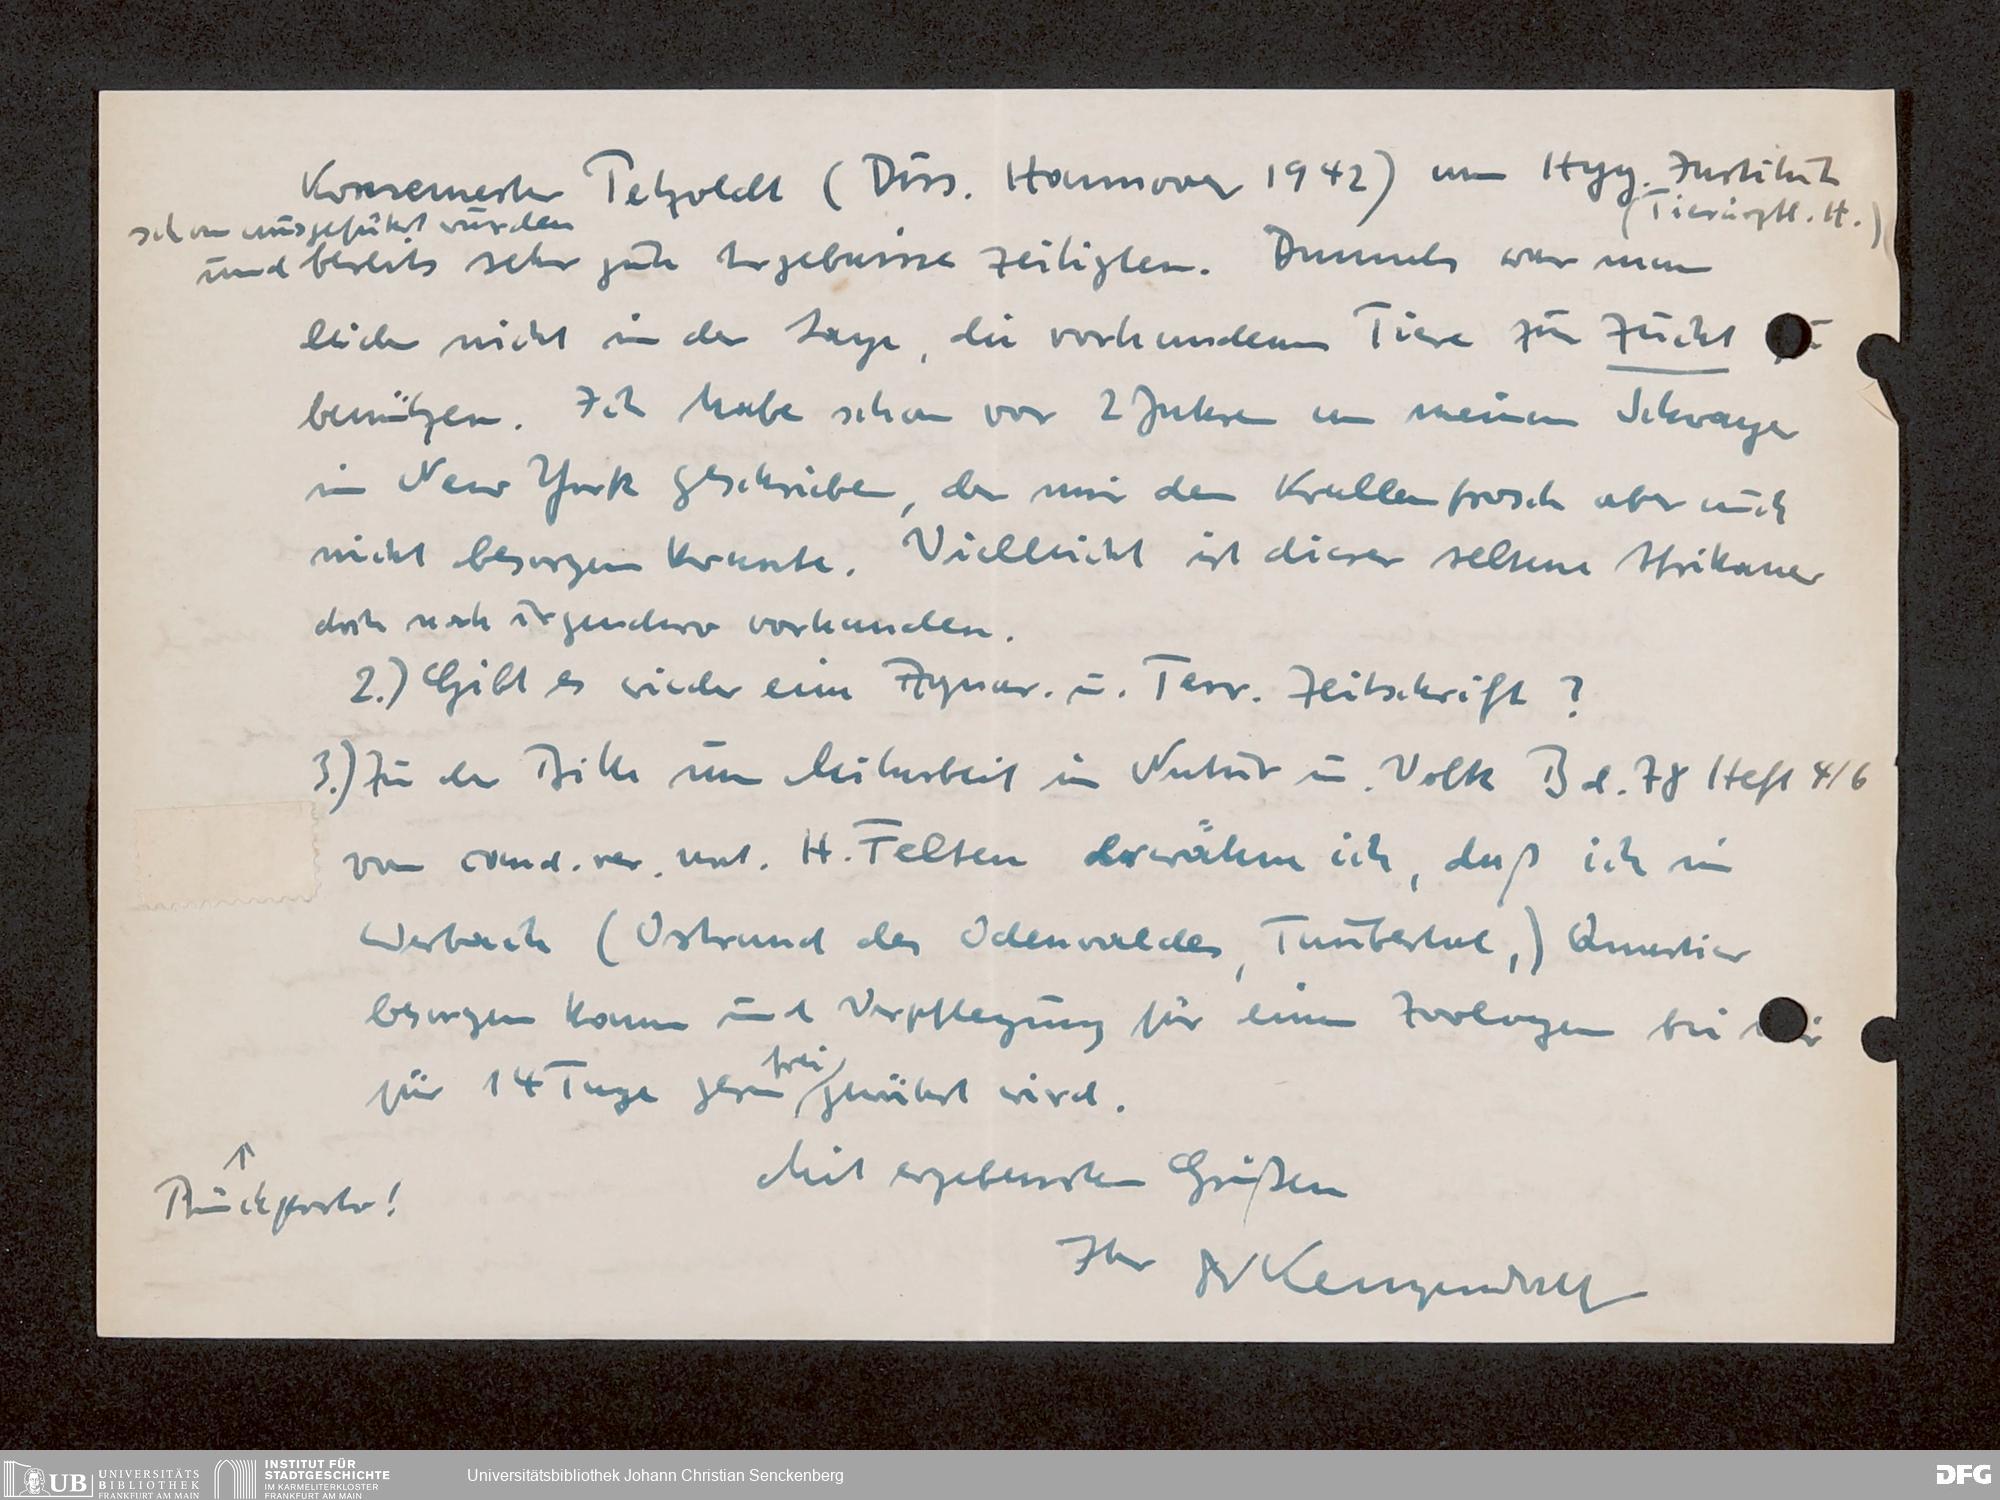 Konsemester Petzoldt (Diss. Hannover 1942) am Hyg. Institut
(Tierärztl. H.)
schon ausgeführt wurden
und bereits sehr gute Ergebnisse zeitigten. Damals war man
leider nicht in der Lage, die vorhandenen Tiere zur Zucht zu
benützen. Ich habe schon vor 2 Jahren an meinen Schwager
in New York geschrieben, der mir den Krallenfrosch aber auch
nicht besorgen konnte. Vielleicht ist dieser seltene Afrikaner
doch noch irgendwo vorhanden.
2.) Gibt es wieder eine Aquar. u. Terr. Zeitschrift?
3.) Zu der Bitte um Mitarbeit in Natur u. Volk Bd. 78 Heft 4/6
von cand. rer. nat. H. Felten erwähne ich, daß ich in
Werbach (Ostrand des Odenwaldes, Taubertal,) Quartier
besorgen kann und Verpflegung für einen Zoologen bei mir
für 14 Tage gern frei gewährt wird.
Mit ergebensten Grüßen
↑
Rückporto!
Ihr Dr
UB UNIVERSITÄTS
BIBLIOTHEK
FRANKFURT AM MAIN
INSTITUT FÜR
STADTGESCHICHTE
IM KARMELITERKLOSTER
FRANKFURT AM MAIN
Universitätsbibliothek Johann Christian Senckenberg
DFG